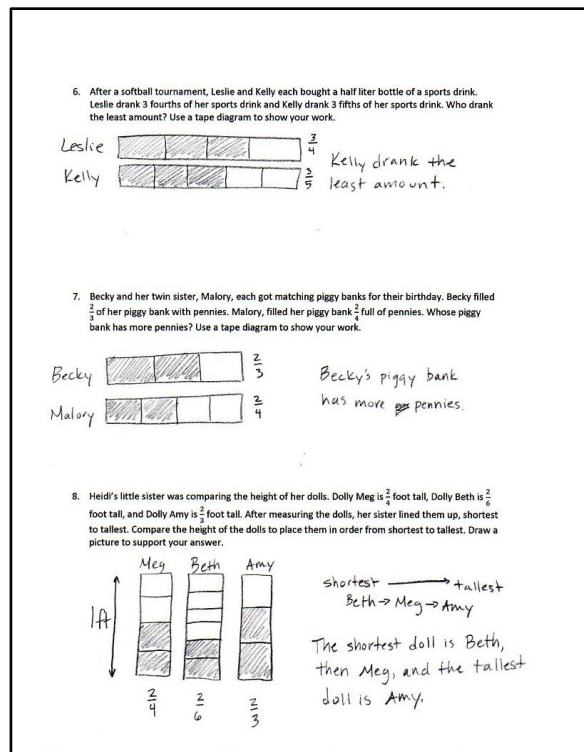 6. After a softball tournament, Leslie and Kelly each bought a half liter bottle of a sports drink.
Leslie drank 3 fourths of her sports drink and Kelly drank 3 fifths of her sports drink. Who drank
the least amount? Use a tape diagram to show your work.
Leslie 3/4
Kelly 3/5
Kelly drank the
least amount.
7. Becky and her twin sister, Malory, each got matching piggy banks for their birthday. Becky filled
2/3 of her piggy bank with pennies. Malory, filled her piggy bank 2/4 full of pennies. Whose piggy
bank has more pennies? Use a tape diagram to show your work.
Becky 2/3
Malory 2/4
Becky's piggy bank
has more pennies.
8. Heidi's little sister was comparing the height of her dolls. Dolly Meg is 2/4 foot tall, Dolly Beth is 2/6
foot tall, and Dolly Amy is 2/3 foot tall. After measuring the dolls, her sister lined them up, shortest
to tallest. Compare the height of the dolls to place them in order from shortest to tallest. Draw a
picture to support your answer.
Meg Beth Amy
1ft
2/4 2/6 2/3
shortest → tallest
Beth → Meg → Amy
The shortest doll is Beth,
then Meg, and the tallest
doll is Amy.